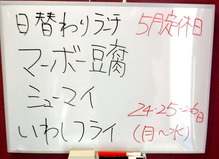 日替わりランチ
マーボー豆腐
シューマイ
いわしフライ
5月定休日
24・25・26日
(月〜水)